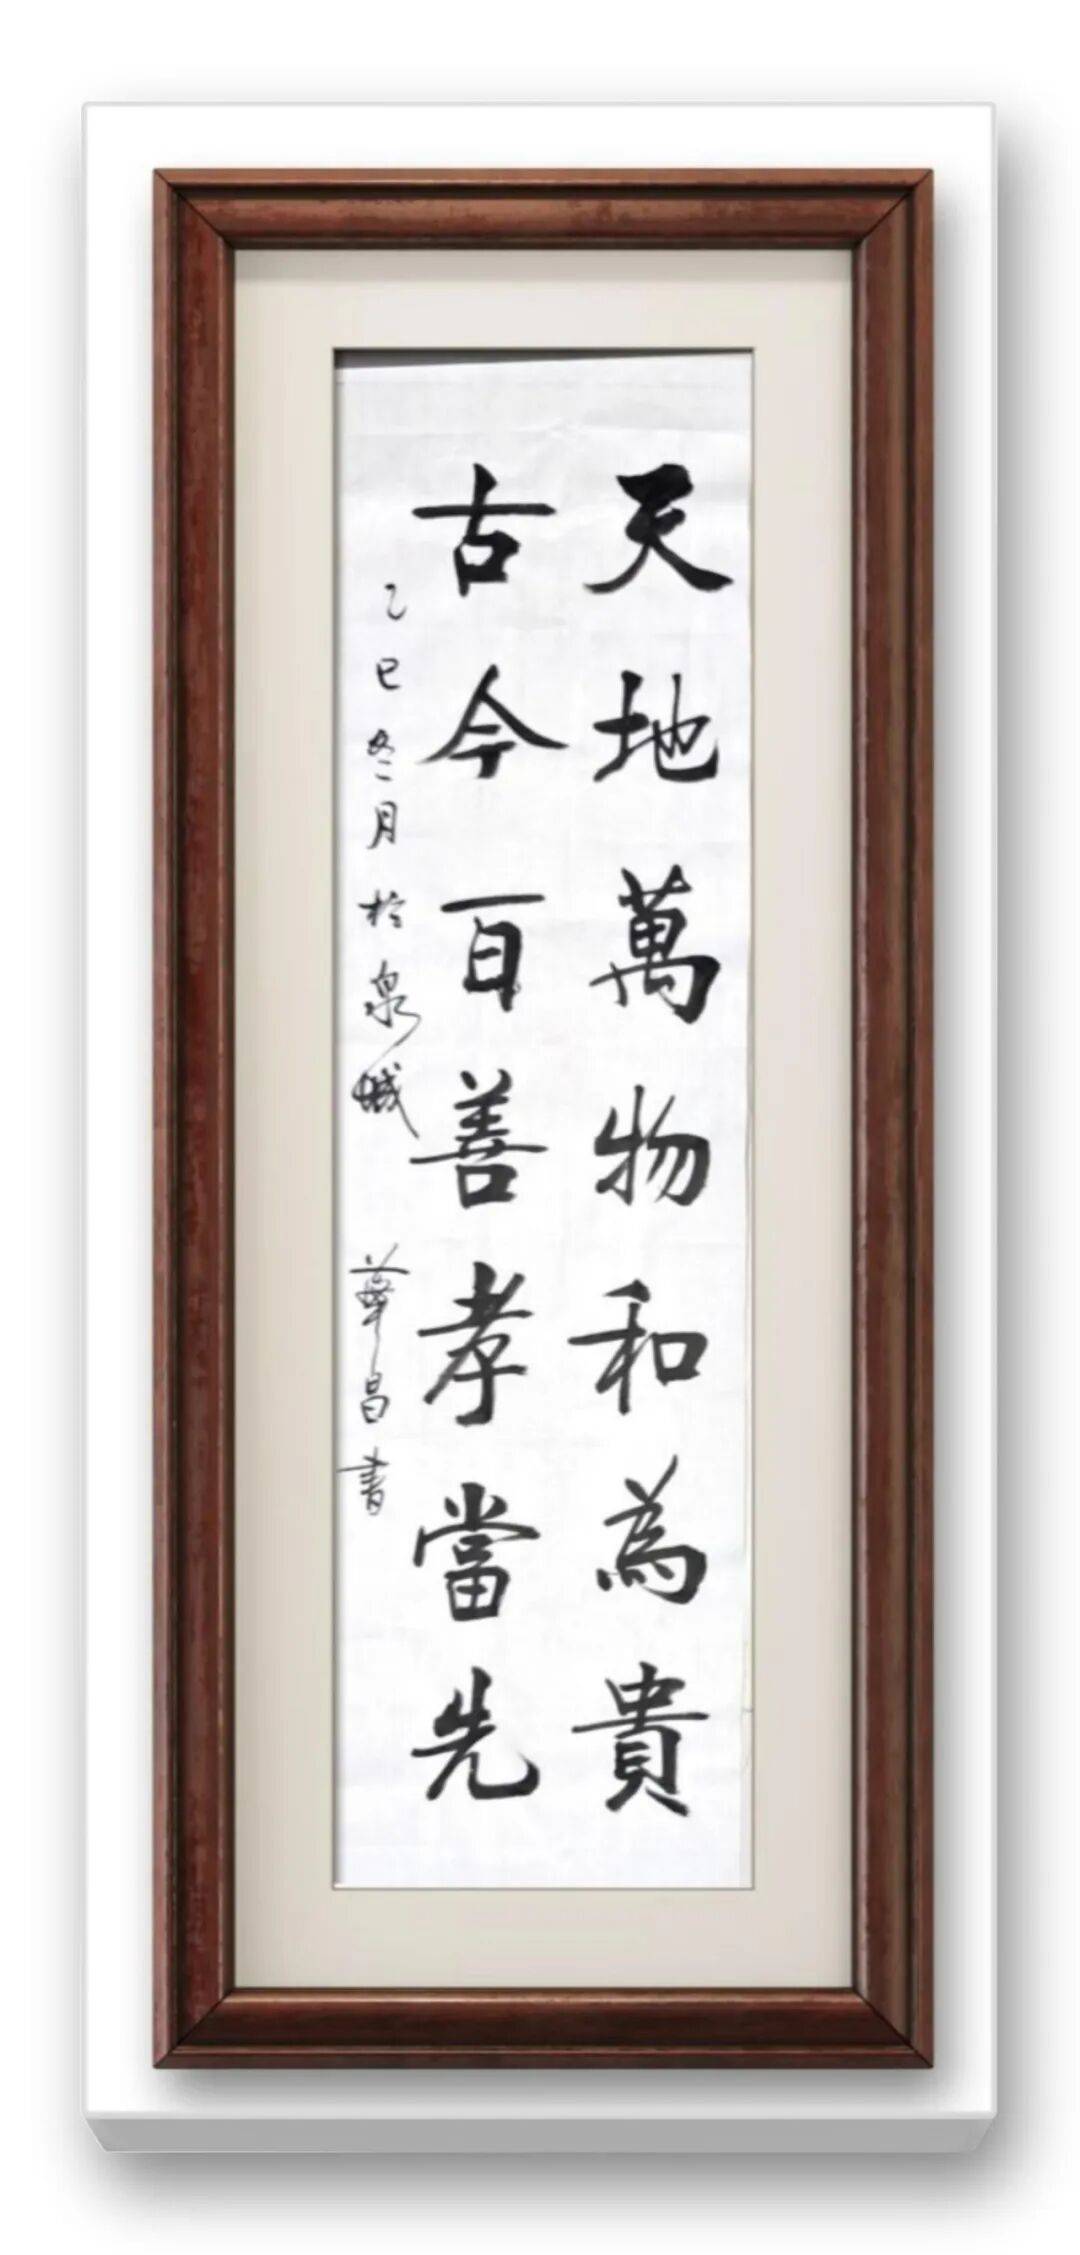 天地萬物和為貴
古今百善孝當先
乙巳冬月於泉城
華昌書